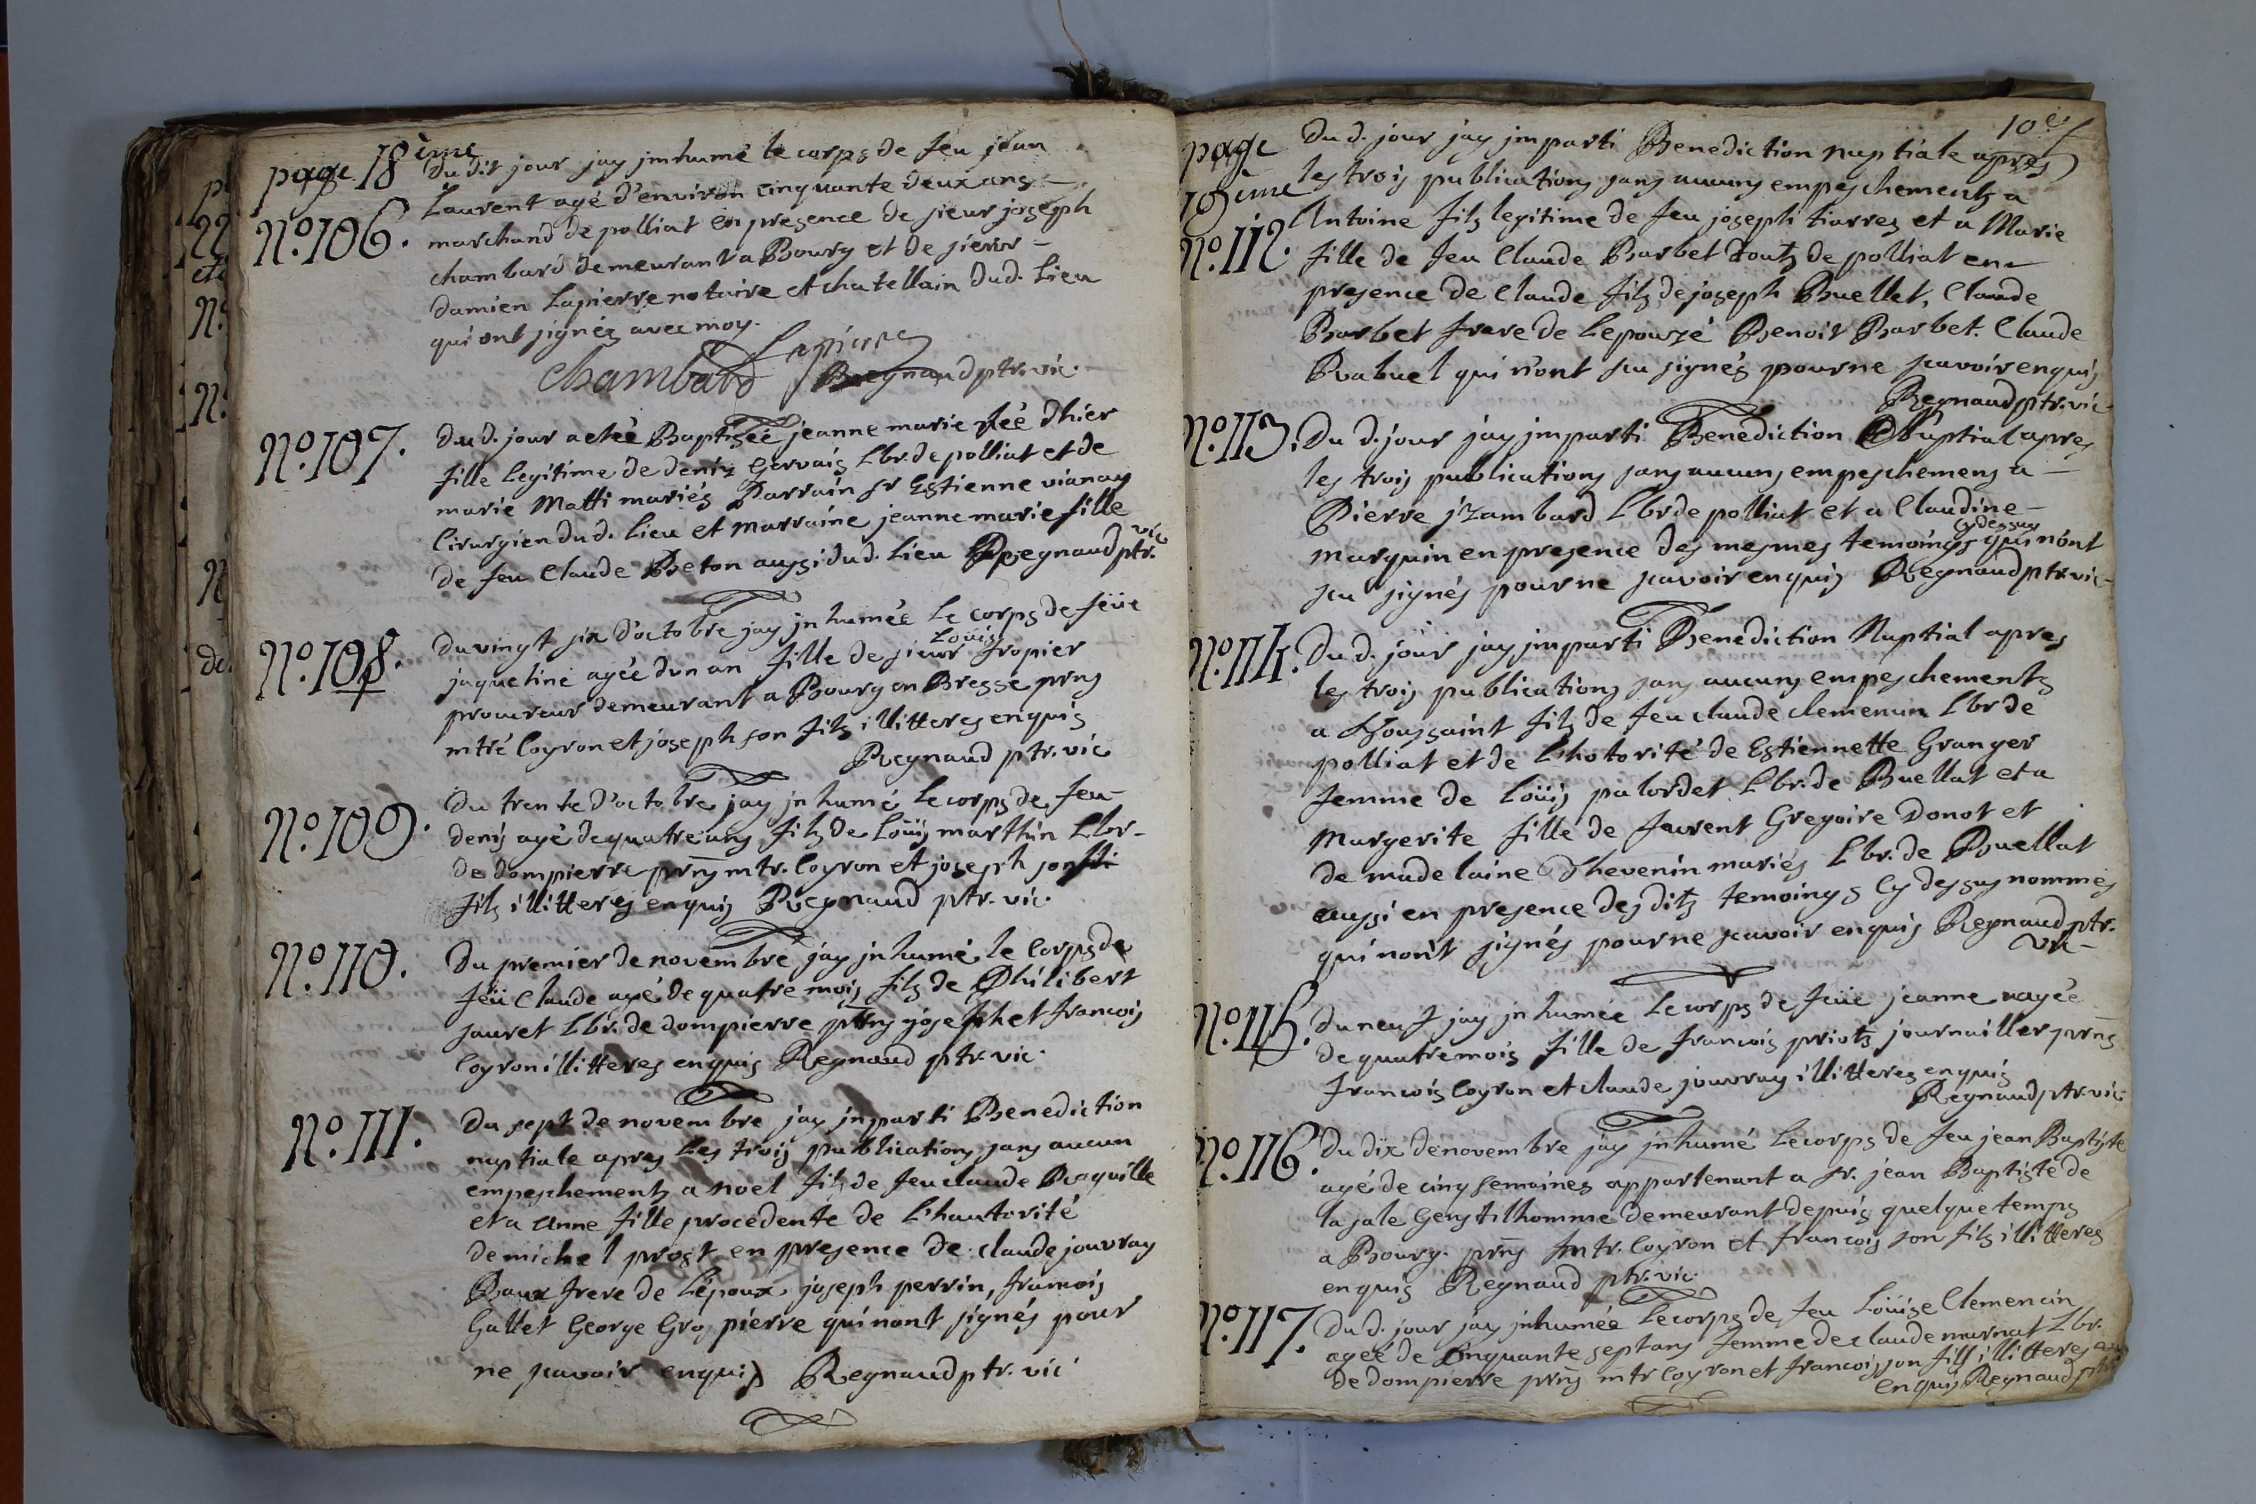 page 18ème
du dit jour jay jnhumé le corps de feu jean
No. 106. Laurent agé d'environ cinquante deux ans
marchand de polliat en presence de sieur joseph
chambard demeurant a Bourg et de sieur
damien Lapierre notaire et chatellain dud. Lieu
qui ont signés avec moy.
Lapierre
Chambard Regnaud ptr. vic.
No. 107. du d. jour a eté Baptisée jeanne marie née dhier
fille Legitime de deniz Gervais Lbr. de polliat et de
marie Matti mariés Parrain sr Estienne vianay
Cirurgien du d. Lieu et marraine jeanne marie fille
de feu Claude Beton aussi du d. Lieu Regnaud ptr. vic
No. 108. du vingt six d'octobre jay jnhumée le corps de feüe
jaqueline agée dun an fille de sieur Loüis fropier
procureur demeurant a Bourg en Bresse prns
mtre Coyron et joseph son fils illitteres enquis
Regnaud ptr. vic
No. 109. du trente d'octobre jay jnhumé le corps de feu
denis agé de quatre ans fils de Loüis marthin Lbr.
de dompierre prns mtr. Coyron et joseph son
fils illitteres enquis Regnaud ptr. vic.
No. 110. du premier de novembre jay jnhumé le Corps de
feü Claude agé de quatre mois fils de Philibert
sauret Lbr. de dompierre prns josephet francois
Coyron illitteres enquis Regnaud ptr. vic.
No. 111. du sept de novembre jay jnparti Benediction
nuptiale apres Les trois publications sans aucun
empeschements a noel fils de feu claude
et a anne fille procedente de L'hautorité
de michel prost en presence de claude jouvray
Baux frere de L'époux joseph perrin, francois
Gallet George Gros pierre qui nont signés pour
ne scavoir enquis Regnaud ptr. vic
10e
page 19ème
du d. jour jay jmparti Benediction nuptiale apres
les trois publications sans aucuns empeschements a
No. 112. Antoine fils legitime de feu joseph tiarres et a Marie
fille de feu Claude Barbet touts de polliat en
presence de Claude fils de joseph Buellet, Claude
Barbet frere de Lepouzé Benoit Barbet. Claude
Rabuel qui n'ont scu signés pour ne scavoir enquis
Regnaud ptr. vic
No. 113. Du d. jour jay jmparti Benediction Nuptial apres
les trois publications sans aucuns empeschemens a
Pierre jzambard Lbr de polliat et a Claudine
marquin en presence des mesmes temoings cy dessus qui nónt
scu signés pour ne scavoir enquis Regnaud ptr. vic
No. 114. Du d. jour jay jmparti Benediction Nuptial apres
les trois publications sans aucuns empeschements
a toussaint fils de feu claude clemencin Lbr de
polliat et de Lhotorité de Estiennette Granger
femme de Loüis palordet Lbr. de Buellat et a
Margerite fille de Laurent Gregoire Donot et
de madelaine Thevenin mariés Lbr. de Buellat
aussi en presence des dits temoings cy dessus nommés
qui nont signés pour ne scavoir enquis Regnaud ptr.
vic
No. 115. Du neuf jay jnhumée le corps de feüe jeanne agée
de quatre mois fille de francois priots journaillier prns
francois Coyron et claude jouvray illitteres enquis
Regnaud ptr. vic.
No. 116. Du dix de novembre jay jnhumé le corps de feu jean Baptiste
agé de cinq semaines appartenant a sr. jean Baptiste de
la sale Genstilhomme demeurant depuis quelque temps
a Bourg. prns mtr. Coyron et francois son fils illitteres
enquis Regnaud ptr. vic.
No. 117. Du d. jour jay jnhumée le corps de feu Loüise Clemencin
ageé de Cinquante sept ans femme de claude murnat Lbr.
de dompierre prns mtr Coyron et francois son fils illitteres
enquis Regnaud